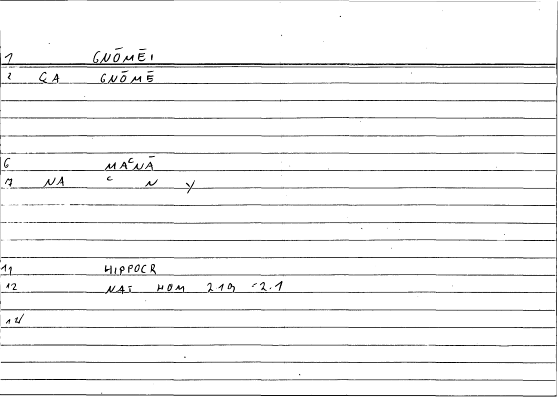 1 GNŌMĒI
2 GA GNŌMĒ
6 MAᶜNĀ
7 NA ᶜ N Y
11 HIPPOCR
12 NAT HOM 219, -2.1
14